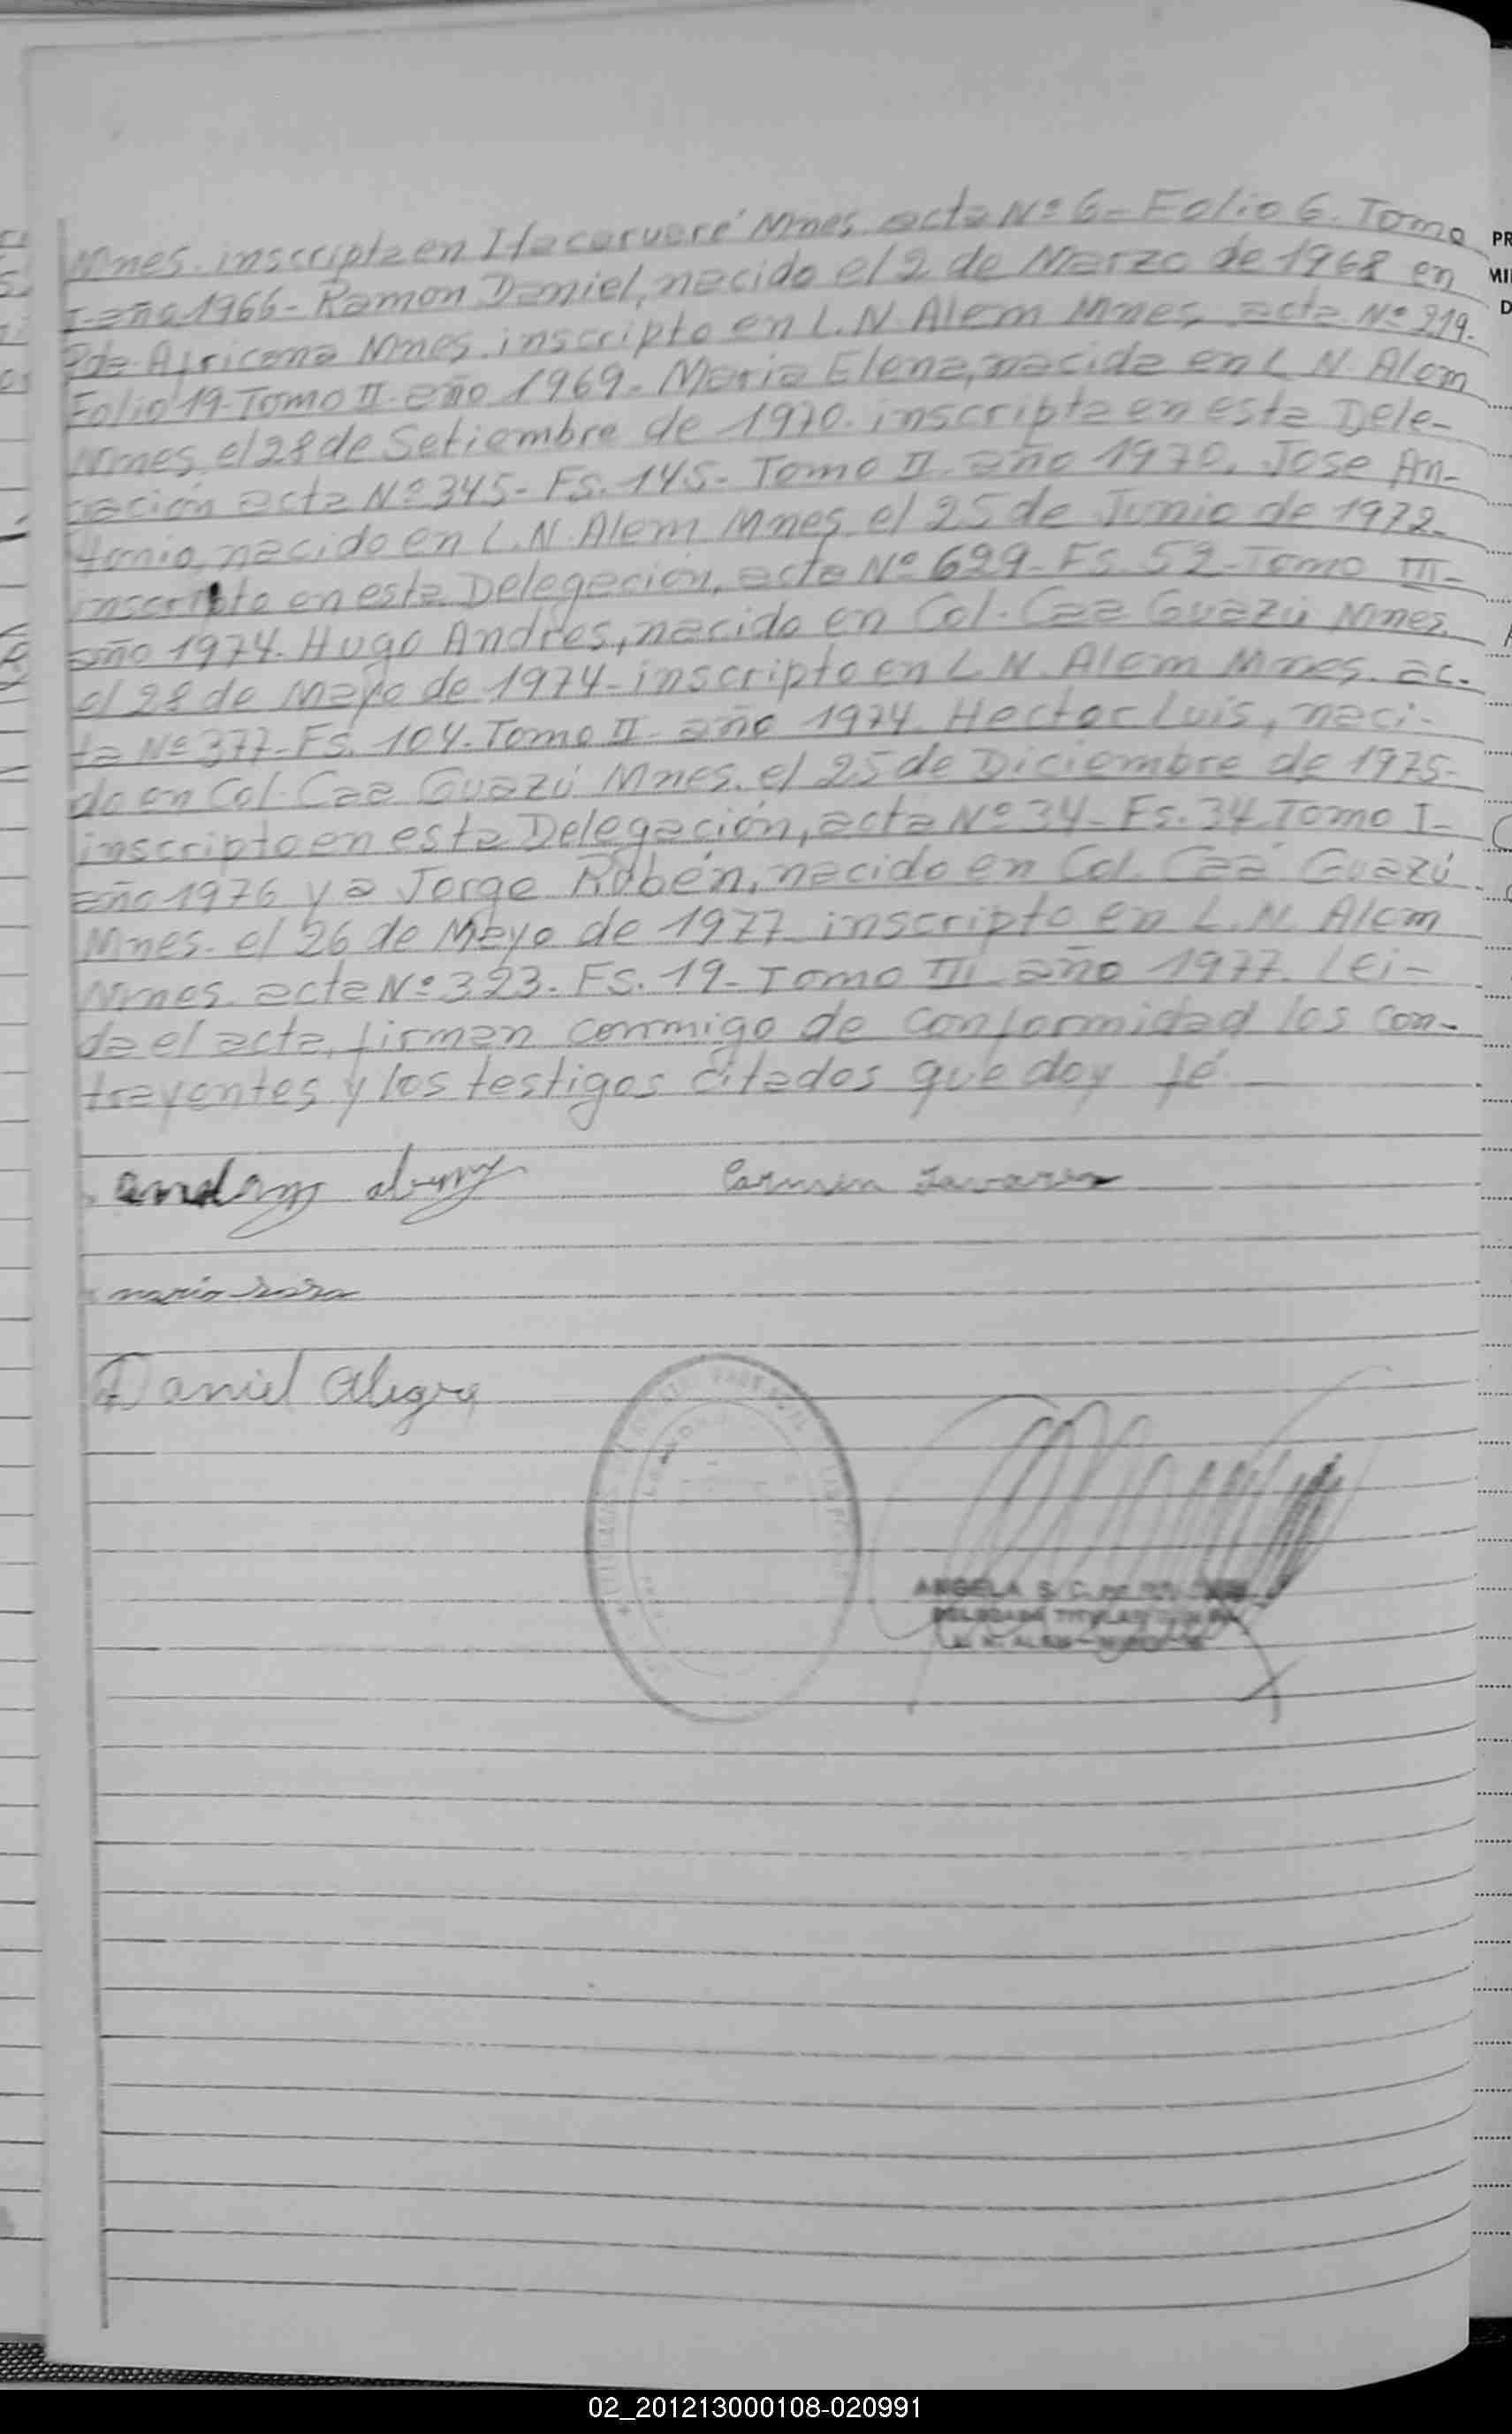 Mnes. inscripta en Itacaruaré Mnes. acta Nº 6- Folio 6. Tomo
I- año 1966- Ramon Daniel, nacido el 2 de Marzo de 1968 en
Pda. Africana Mnes. inscripto en L.N. Alem Mnes, acta Nº 219-
Folio 19- Tomo II- año 1969- Maria Elena, nacida en L N. Alem
Mnes, el 28 de Setiembre de 1970. inscripta en esta Dele-
gación acta Nº 345- Fs. 145- Tomo II- año 1970, Jose An-
tonio, nacido en L.N. Alem Mnes. el 25 de Junio de 1972
inscripto en esta Delegación, acta Nº 629- Fs. 52- Tomo III-
año 1974. Hugo Andres, nacido en Col. Caa Guazú Mnes.
el 28 de Mayo de 1974- inscripto en L N. Alem Mnes. ac-
ta Nº 377- Fs. 104. Tomo II- año 1974. Hector Luis, naci-
do en Col. Caa Guazú Mnes. el 25 de Diciembre de 1975-
inscripto en esta Delegación, acta Nº 34- Fs. 34 Tomo I-
año 1976 y a Jorge Rubén, nacido en Col. Caá Guazú
Mnes. el 26 de Mayo de 1977 inscripto en L.N. Alem
Mnes. acta Nº 323. Fs. 19- Tomo III- año 1977. Lei-
da el acta, firman conmigo de conformidad los con-
trayentes y los testigos citados que doy fé
Carmen Tavares
Daniel Alegre
ANGELA S. C. de
DELEGADA TITULAR
L. N. ALEM - 
PR
MI
D
02_201213000108-020991